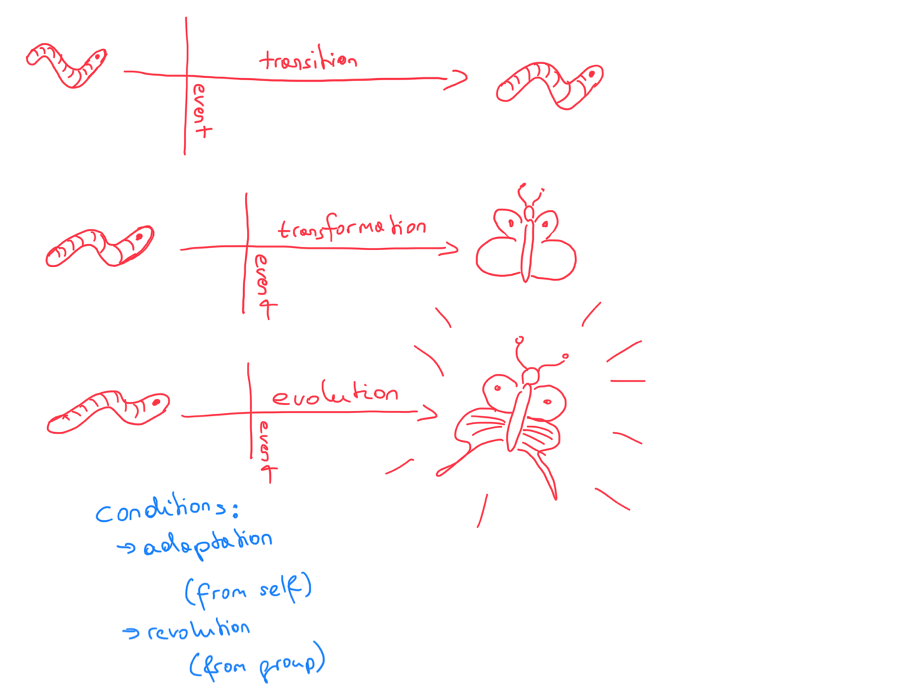 transition
event
transformation
event
evolution
event
Conditions:
→ adaptation
(from self)
→ revolution
(from group)